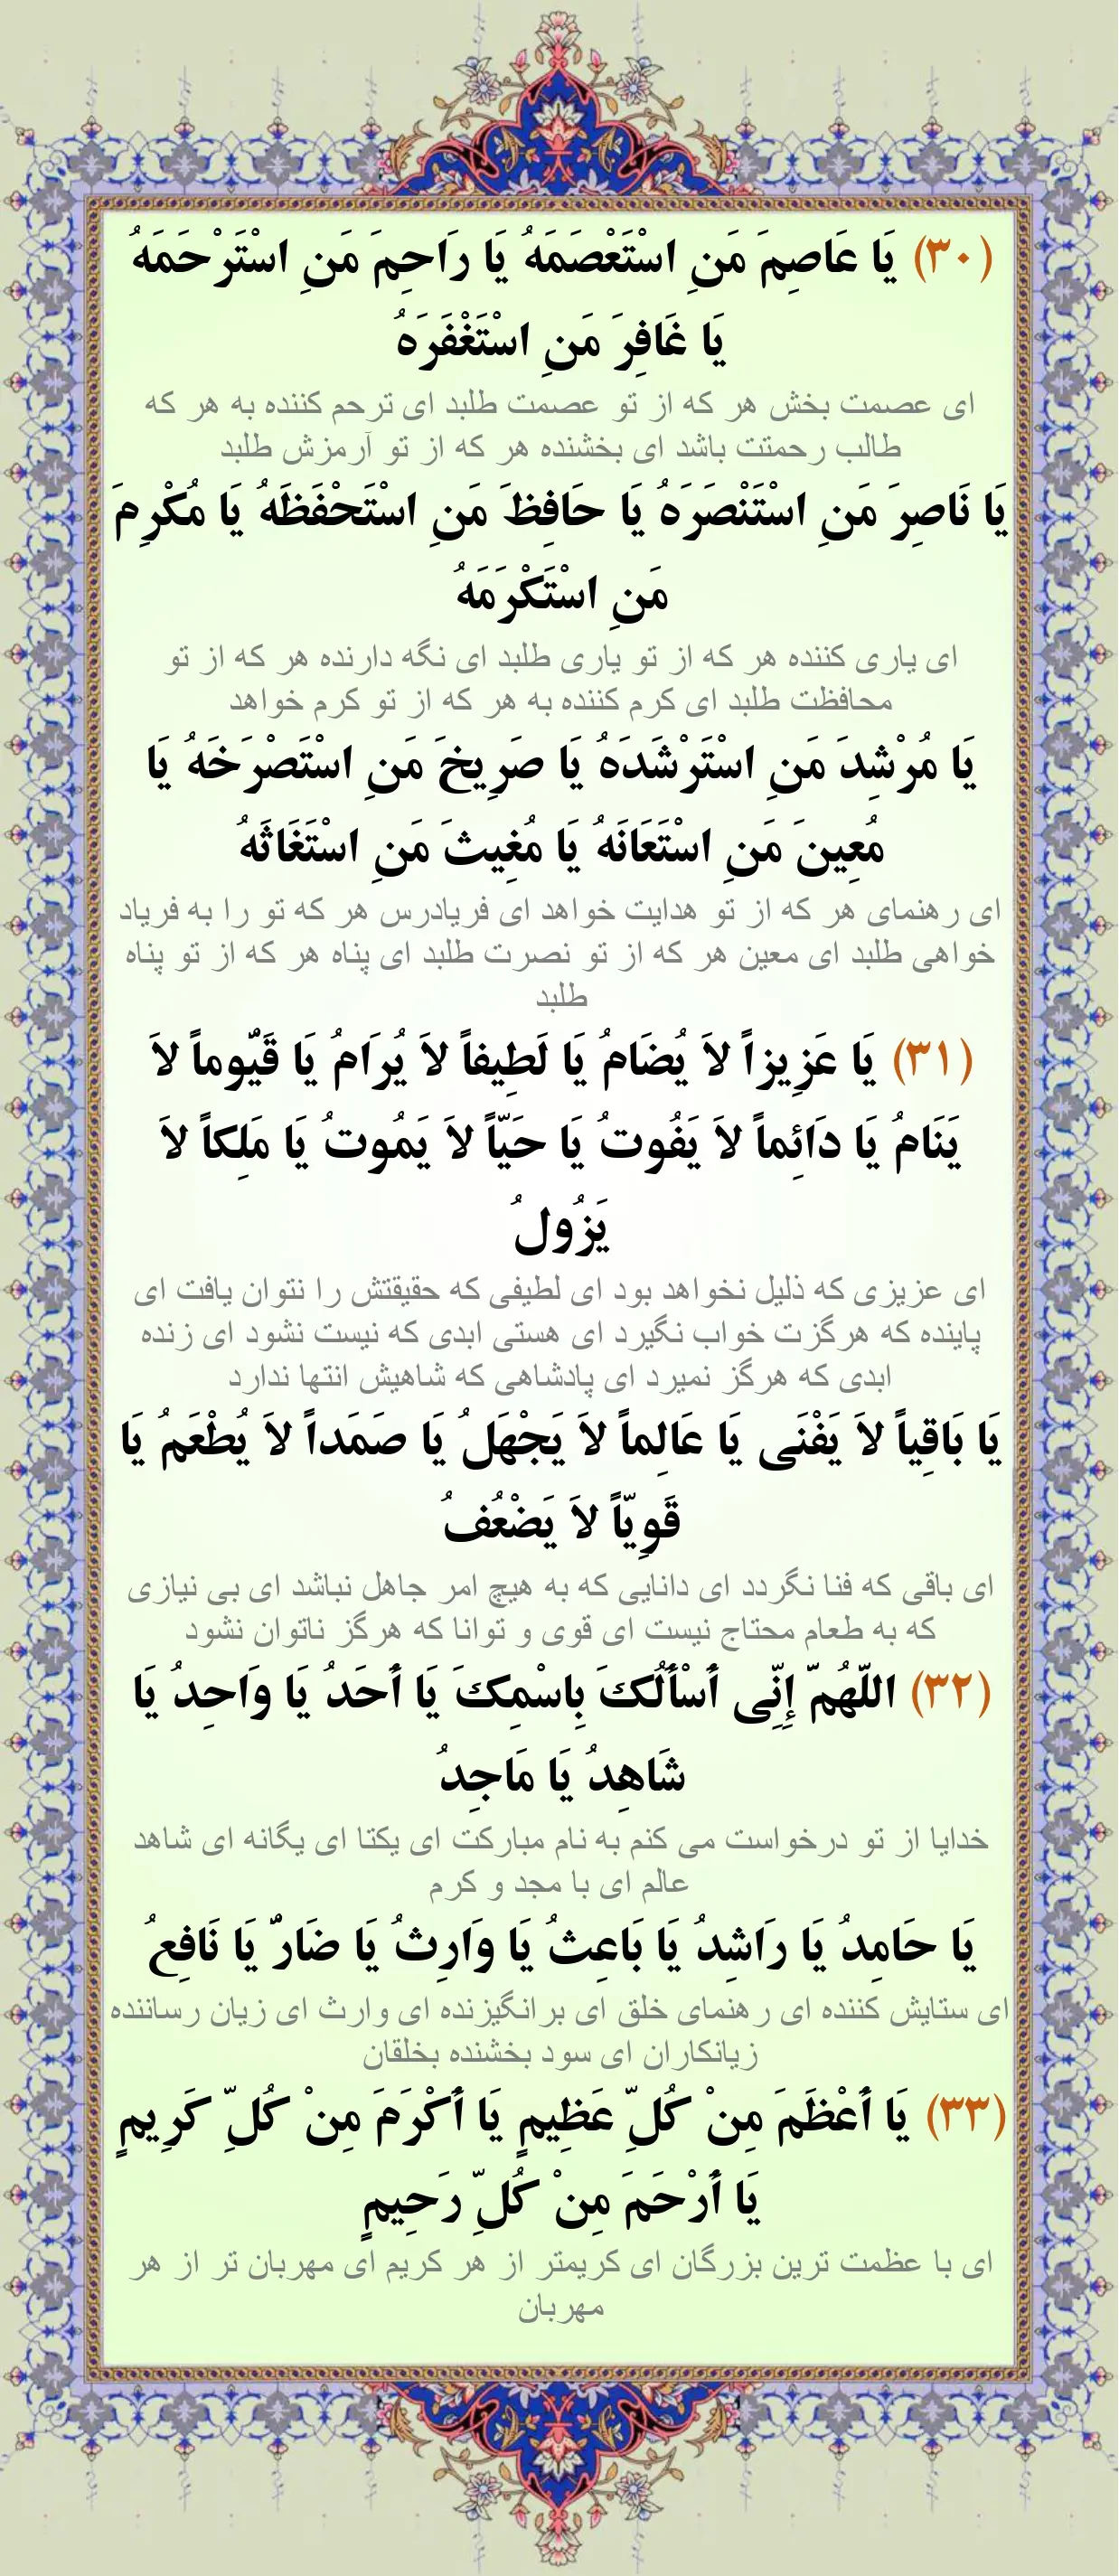 (۳۰) يَا عَاصِمَ مَنِ اسْتَعْصَمَهُ يَا رَاحِمَ مَنِ اسْتَرْحَمَهُ
يَا غَافِرَ مَنِ اسْتَغْفَرَهُ
ای عصمت بخش هر که از تو عصمت طلبد ای ترحم کننده به هر که
طالب رحمتت باشد ای بخشنده هر که از تو آرمزش طلبد
يَا نَاصِرَ مَنِ اسْتَنْصَرَهُ يَا حَافِظَ مَنِ اسْتَحْفَظَهُ يَا مُكْرِمَ
مَنِ اسْتَكْرَمَهُ
ای یاری کننده هر که از تو یاری طلبد ای نگه دارنده هر که از تو
محافظت طلبد ای کرم کننده به هر که از تو کرم خواهد
يَا مُرْشِدَ مَنِ اسْتَرْشَدَهُ يَا صَرِيخَ مَنِ اسْتَصْرَخَهُ يَا
مُعِينَ مَنِ اسْتَعَانَهُ يَا مُغِيثَ مَنِ اسْتَغَاثَهُ
ای رهنمای هر که از تو هدایت خواهد ای فریادرس هر که تو را به فریاد
خواهی طلبد ای معین هر که از تو نصرت طلبد ای پناه هر که از تو پناه
طلبد
(۳۱) يَا عَزِيزاً لاَ يُضَامُ يَا لَطِيفاً لاَ يُرَامُ يَا قَيُّوماً لاَ
يَنَامُ يَا دَائِماً لاَ يَفُوتُ يَا حَيّاً لاَ يَمُوتُ يَا مَلِكاً لاَ
يَزُولُ
ای عزیزی که ذلیل نخواهد بود ای لطیفی که حقیقتش را نتوان یافت ای
پاینده که هرگزت خواب نگیرد ای هستی ابدی که نیست نشود ای زنده
ابدی که هرگز نمیرد ای پادشاهی که شاهیش انتها ندارد
يَا بَاقِياً لاَ يَفْنَى يَا عَالِماً لاَ يَجْهَلُ يَا صَمَداً لاَ يُطْعَمُ يَا
قَوِيّاً لاَ يَضْعُفُ
ای باقی که فنا نگردد ای دانایی که به هیچ امر جاهل نباشد ای بی نیازی
که به طعام محتاج نیست ای قوی و توانا که هرگز ناتوان نشود
(۳۲) اللّهُمّ إِنِّى أَسْأَلُكَ بِاسْمِكَ يَا أَحَدُ يَا وَاحِدُ يَا
شَاهِدُ يَا مَاجِدُ
خدایا از تو درخواست می کنم به نام مبارکت ای یکتا ای یگانه ای شاهد
عالم ای با مجد و کرم
يَا حَامِدُ يَا رَاشِدُ يَا بَاعِثُ يَا وَارِثُ يَا ضَارُّ يَا نَافِعُ
ای ستایش کننده ای رهنمای خلق ای برانگیزنده ای وارث ای زیان رساننده
زیانکاران ای سود بخشنده بخلقان
(۳۳) يَا أَعْظَمَ مِنْ كُلِّ عَظِيمٍ يَا أَكْرَمَ مِنْ كُلِّ كَرِيمٍ
يَا أَرْحَمَ مِنْ كُلِّ رَحِيمٍ
ای با عظمت ترین بزرگان ای کریمتر از هر کریم ای مهربان تر از هر
مهربان